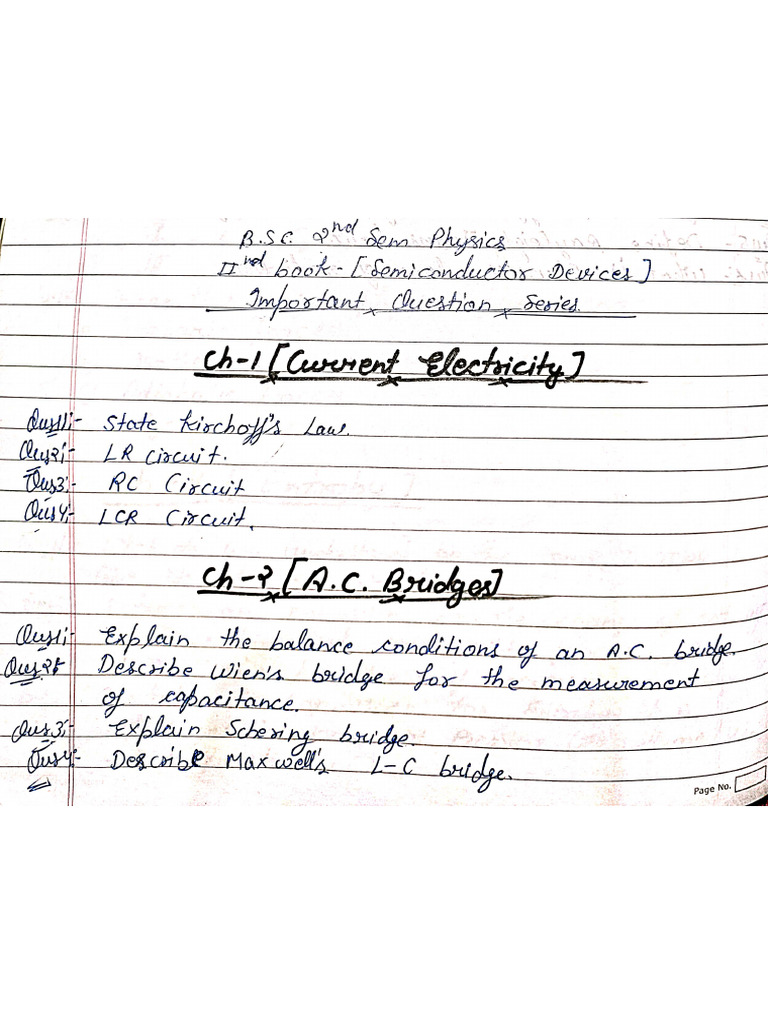 B.SC. 2nd Sem Physics
IInd book - [Semiconductor Devices]
Important Question Series.
Ch-1 [Current Electricity]
Ques1:- State Kirchoff's Law.
Ques2:- LR circuit.
Ques3:- RC Circuit
Ques4:- LCR Circuit.
Ch-2 [A.C. Bridges]
Ques1:- Explain the balance conditions of an A.C. bridge.
Ques2:- Describe Wien's bridge for the measurement
of capacitance.
Ques3:- Explain Schering bridge.
Ques4:- Describe Maxwell's L-C bridge.
Page No.